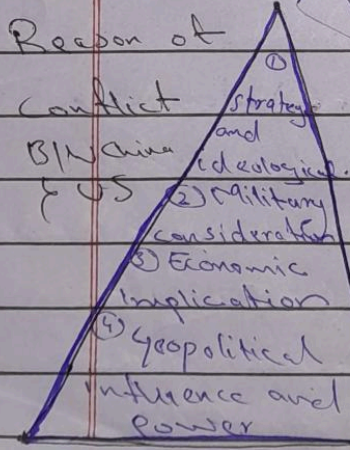 Reason of
Conflict
B/N China
& US
①
strategic
and
ideological
② Military
consideration
③ Economic
implication
④ Geopolitical
influence and
power